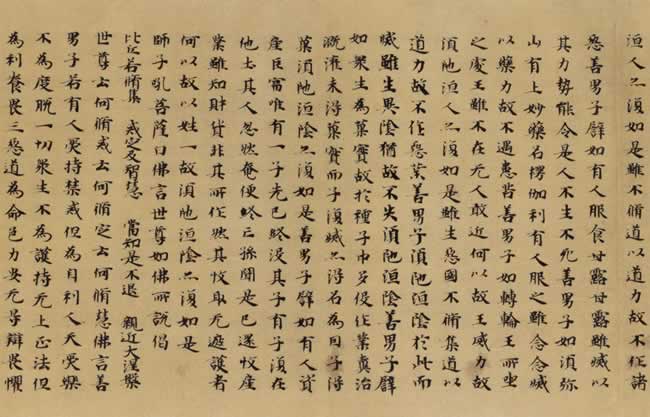 洹人亦復如是雖不脩道以道力故不作諸
惡善男子譬如有人服食甘露甘露雖滅以
其力勢能令是人不生不死善男子如須弥
山有上妙藥名楞伽利有人服之雖念念滅
以藥力故不遇患苦善男子如轉輪王所坐
之處王雖不在无人敢近何以故王威力故
須陁洹人亦復如是雖生惡國不脩集道以
道力故不作惡業善男子須陁洹陰於此而
滅雖生異陰猶故不失須陁洹陰善男子譬
如衆生為菓實故於種子中多役作業糞治
溉灌未得菓實而子復滅亦得名為因子得
菓須陁洹陰亦復如是善男子譬如有人資
產巨富唯有一子先已終没其子有子復在
他土其人忽然奄便終亡孫聞是已還收產
業雖知財貨非其所作然其收取无遮護者
何以故以姓一故須陁洹陰亦復如是
師子吼菩薩白佛言世尊如佛所說偈
比丘若脩集 戒定及智慧 當知是不退 親近大涅槃
世尊云何脩戒云何脩定云何脩慧佛言善
男子若有人受持禁戒但為自利人天受樂
不為度脫一切衆生不為護持无上正法但
為利養畏三惡道為命色力安无导辯畏懼